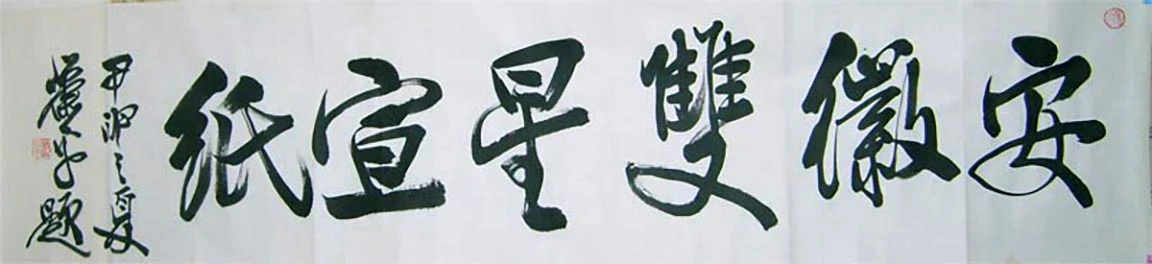 安徽雙星宣紙
之夏
題